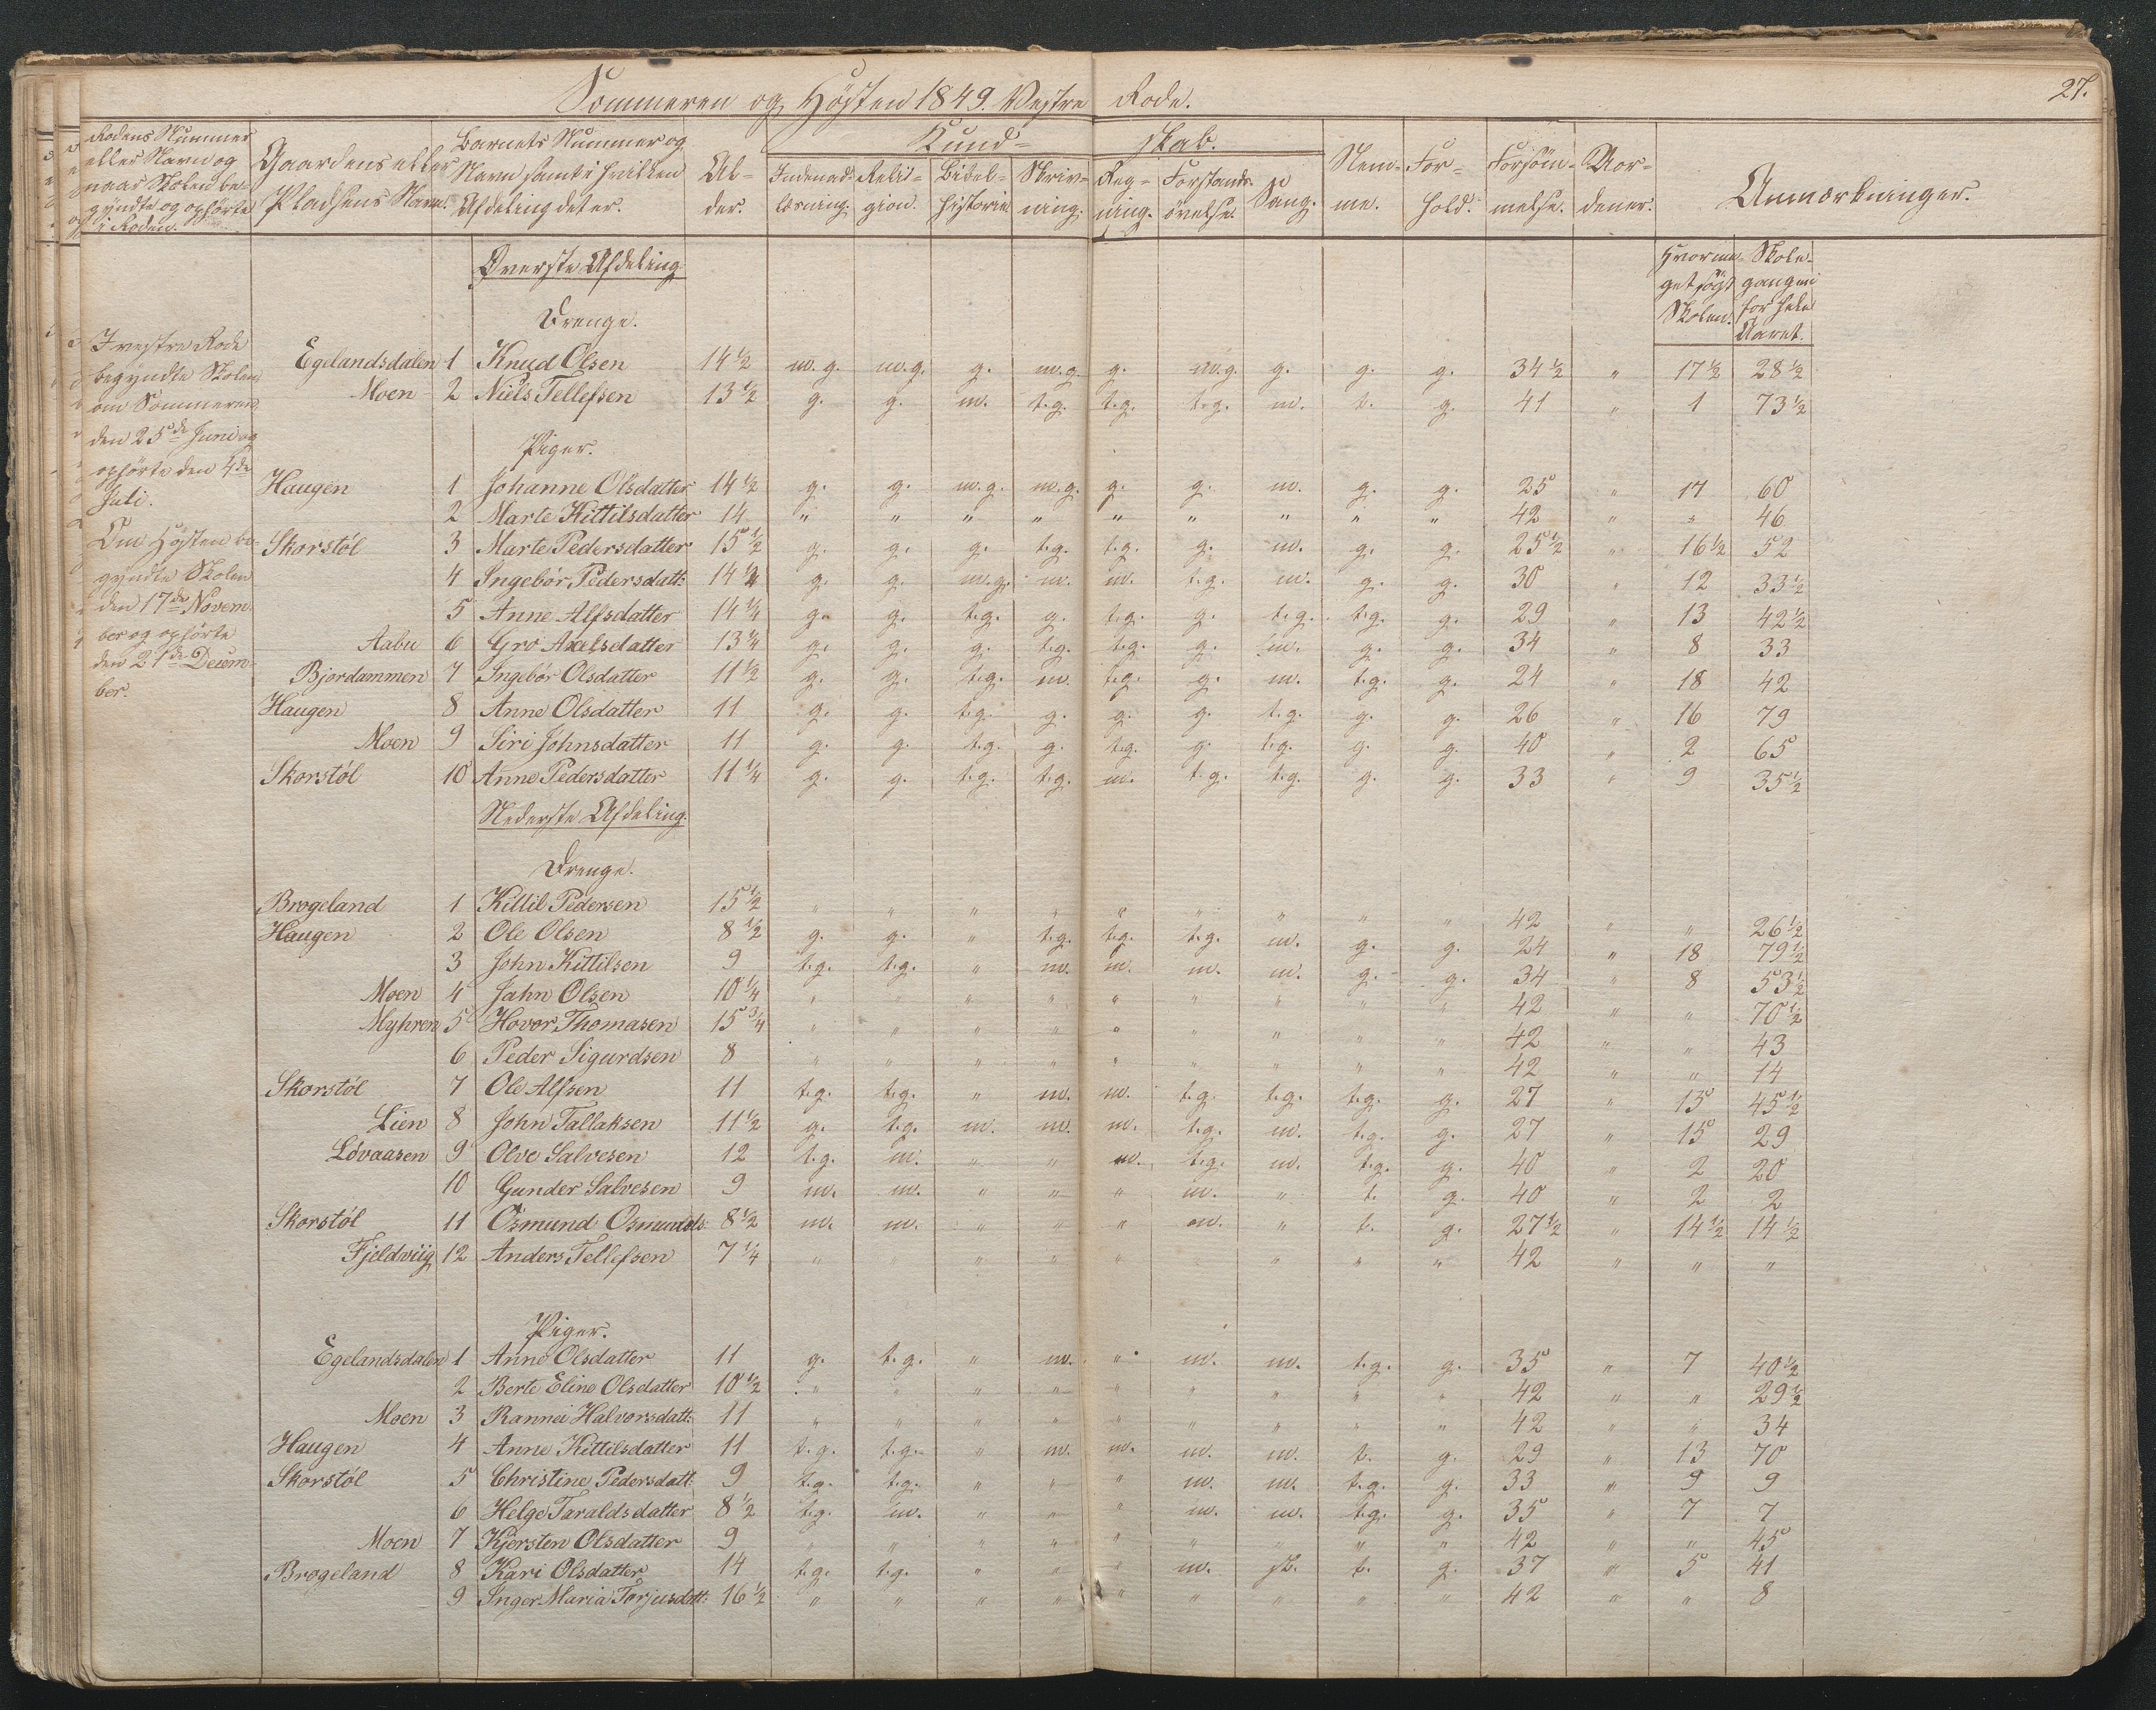 Sommeren og Høsten 1849. Vestre Rode.
27.
Rodens Nummer eller Navn og naar Skolen begyndte og ophørte i Roden.
Gaardens eller Pladsens Navn.
Barnets Nummer og Navn samt i hvilken Afdeling det er.
Alder.
Kundskab.
Indenadlæsning.
Religion.
Bibelhistorie
Skrivning.
Regning.
Forstandsøvelse.
Sang.
Nemme.
Forhold.
Forsømmelse.
Vordener.
Anmærkninger.
Hvormeget søgt Skolen.
Skolegangen for hele Aaret.
I vestre Rode
begyndte Skolen
om Sommeren
den 25de Juni og
ophørte den 4de
Juli.
Om Høsten be-
gyndte Skolen
den 17de Novem-
ber og ophørte
den 21de Decem-
ber.
Øverste Afdeling
Drenge.
Egelandsdalen 1 Knud Olsen 14 1/2 m.g. m.g. g. m.g. g. m.g. g. g. g. 34 1/2 " 17 1/2 28 1/2
Moen 2 Niels Tellefsen 13 1/2 g. g. m. t.g. t.g. t.g. m. t. g. 41 " 1 73 1/2
Piger.
Haugen 1 Johanne Olsdatter 14 1/2 g. g. m.g. m.g. g. g. m. g. g. 25 " 17 60
2 Marte Kittilsdatter 14 " " " " " " " " " 42 " " 46
Skorstøl 3 Marte Pedersdatter 15 1/2 g. g. g. t.g. t.g. g. m. g. g. 25 1/2 " 16 1/2 52
4 Ingebór Pedersdatt: 14 1/4 g. g. m.g. m. m. t.g. m. g. g. 30 " 12 33 1/2
5 Anne Alfsdatter 14 1/4 g. g. t.g. g. t.g. g. t.g. t.g. g. 29 " 13 42 1/2
Aabu 6 Gro Axelsdatter 13 1/4 g. g. g. t.g. t.g. g. m. g. g. 34 " 8 33
Bjordammen 7 Ingebór Olsdatter 11 1/2 g. g. t.g. m. t.g. g. m. t.g. g. 24 " 18 42
Haugen 8 Anne Olsdatter 11 g. g. t.g. g. g. g. t.g. g. g. 26 " 16 79
Moen 9 Siri Johnsdatter 11 g. g. t.g. g. t.g. g. t.g. g. g. 40 " 2 65
Skorstøl 10 Anne Pedersdatter 11 1/4 g. g. t.g. t.g. m. t.g. t.g. g. g. 33 " 9 35 1/2
Nederste Afdeling.
Drenge.
Brogeland 1 Kittil Pedersen 15 1/2 " " " " " " " " " 42 " " 26 1/2
Haugen 2 Ole Olsen 8 1/2 g. g. " t.g. t.g. t.g. m. g. g. 24 " 18 79 1/2
3 John Kittilsen 9 t.g. t.g. " m. m. m. m. g. g. 34 " 8 53 1/2
Moen 4 Jahn Olsen 10 1/4 " " " " " " " " " 42 " " 70 1/2
Myhren 5 Hovor Thomasen 15 3/4 " " " " " " " " " 42 " " 43
6 Peder Sigurdsen 8 " " " " " " " " " 42 " " 14
Skorstøl 7 Ole Alfsen 11 t.g. t.g. " m. m. t.g. t.g. t.g. g. 27 " 15 45 1/2
Lien 8 John Tallaksen 11 1/2 g. t.g. m. m. m. t.g. m. t.g. g. 27 " 15 29
Løvaasen 9 Olve Salvesen 12 t.g. m. " " m. t.g. m. t.g. g. 40 " 2 20
10 Gunder Salvesen 9 m. m. " " " m. " t. g. 40 " 2 2
Skorstøl 11 Osmund Osmunds: 8 1/2 m. m. " " " m. " t. g. 27 1/2 " 14 1/2 14 1/2
Fjeldviig 12 Anders Tellefsen 7 1/4 " " " " " " " " " 42 " " "
Piger.
Egelandsdalen 1 Anne Olsdatter 11 g. t.g. " m. " m. m. t.g. g. 35 " 7 40 1/2
2 Berte Eline Olsdatter 10 1/2 " " " " " " " " " 42 " " 29 1/2
Moen 3 Rannei Halvorsdatt: 11 " " " " " " " " " 42 " " 34
Haugen 4 Anne Kittilsdatter 11 t.g. t.g. " m. m. m. m. t. g. 29 " 13 70
Skorstøl 5 Christine Pedersdatt: 9 t.g. t.g. " " " m. m. t.g. g. 33 " 9 9
6 Helge Taraldsdatter 8 1/2 t.g. m. " " " m. m. t.g. g. 35 " 7 7
Moen 7 Kjersten Olsdatter 9 " " " " " " " " " 42 " " 45
Brogeland 8 Kari Olsdatter 14 t.g. t.g. " " " m. sl. t. g. 37 " 5 41
9 Inger Maria Torjusdatt: 16 1/2 " " " " " " " " " 42 " " 8